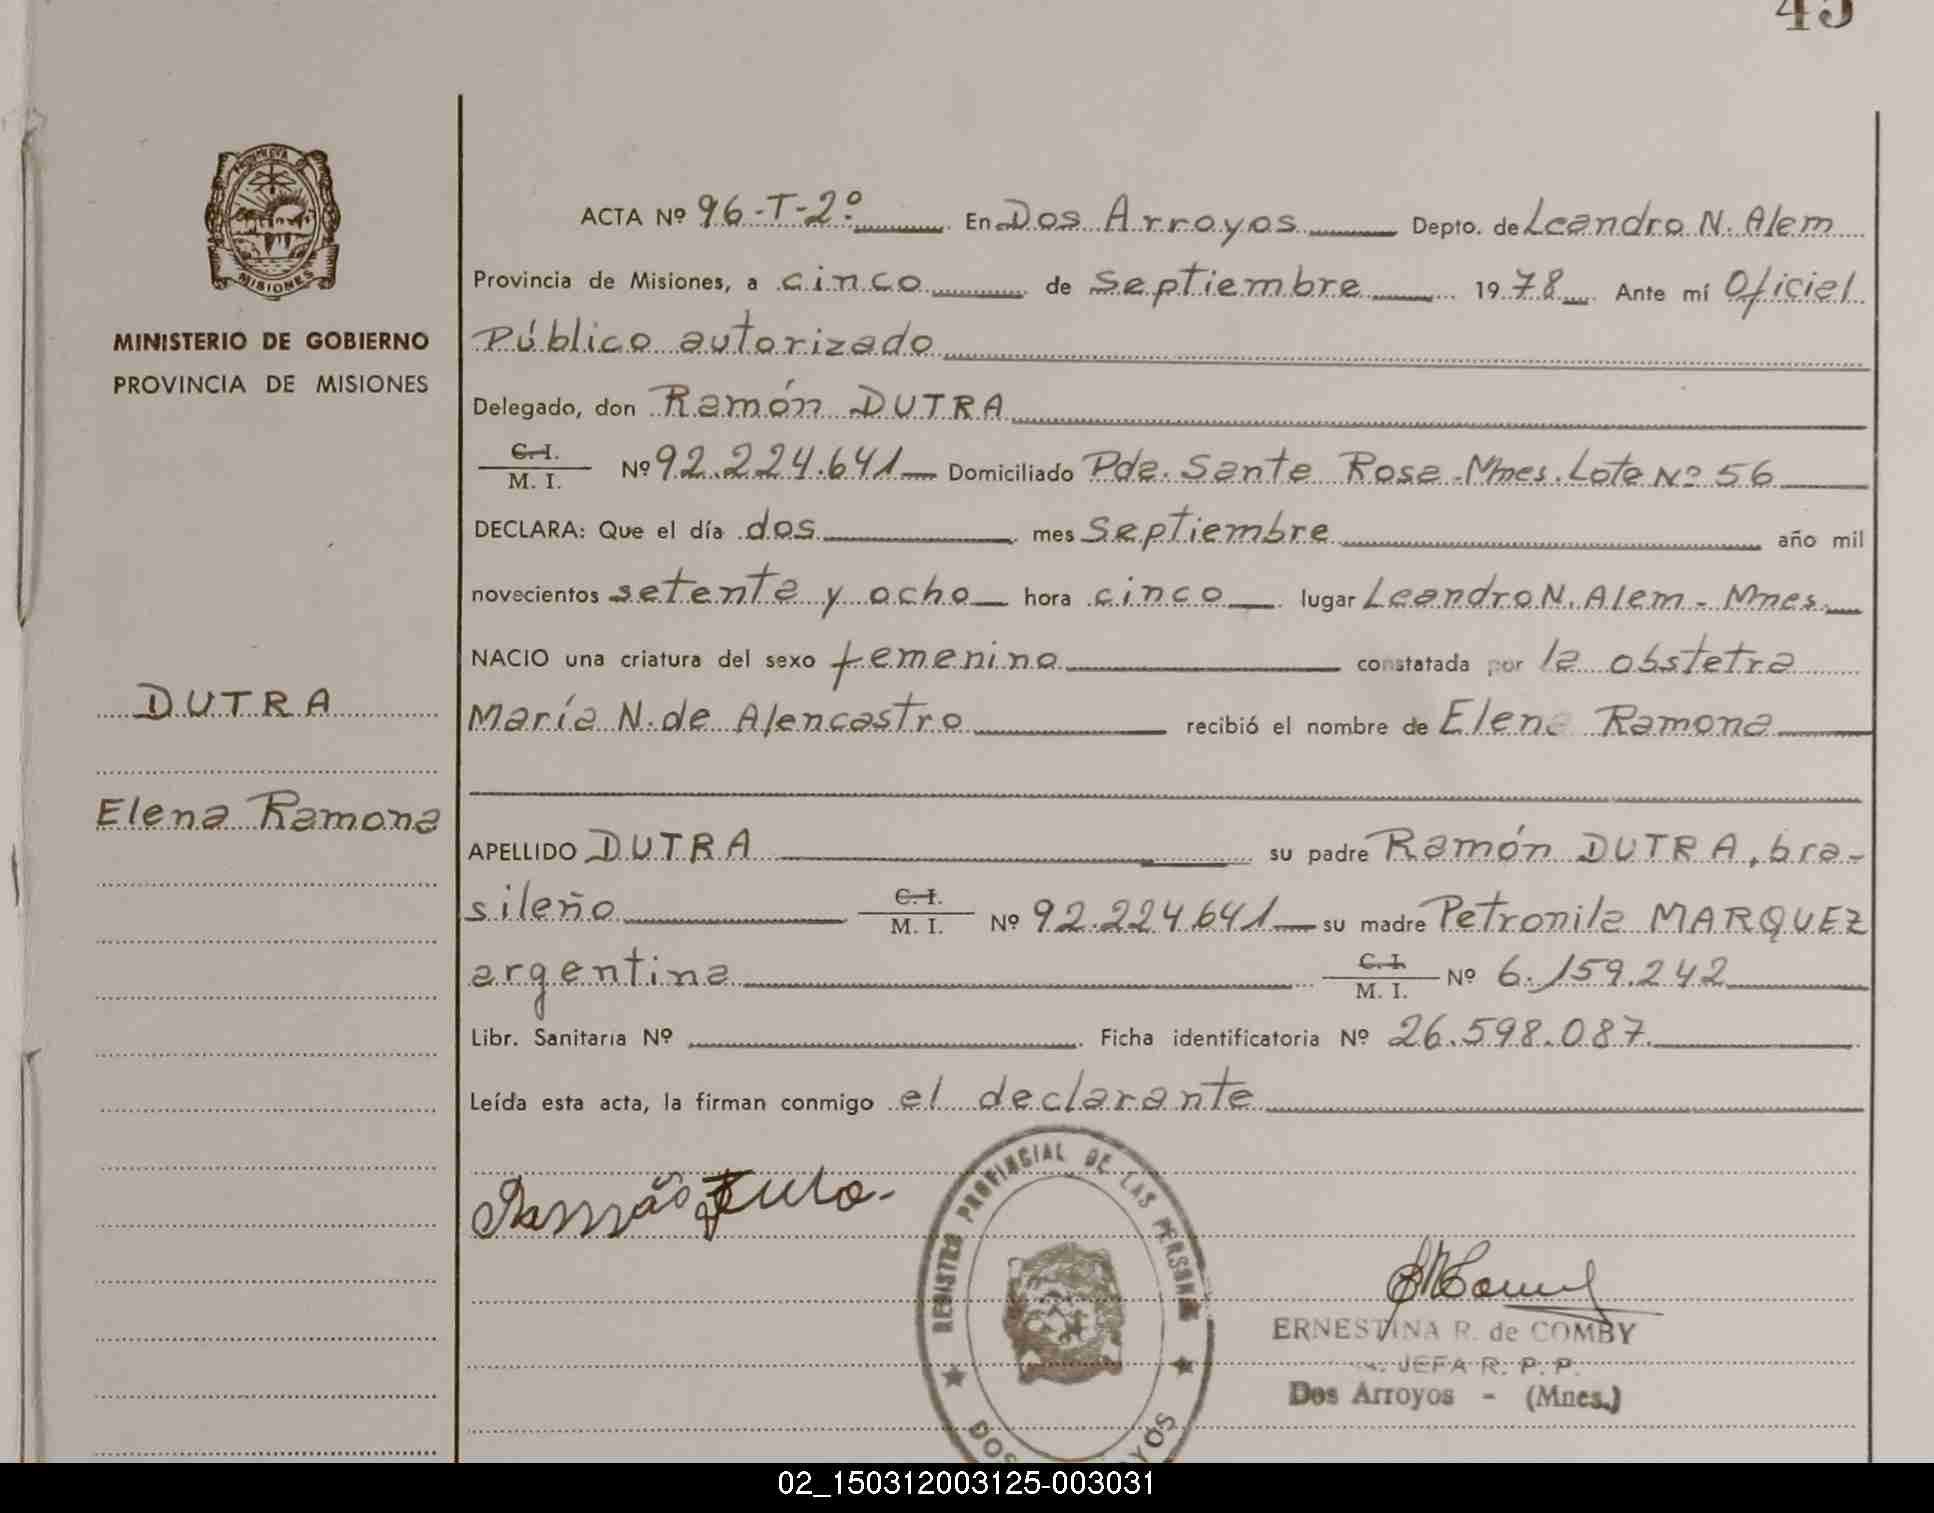 45
PROVINCIA DE
MISIONES
MINISTERIO DE GOBIERNO
PROVINCIA DE MISIONES
DUTRA
Elena Ramona
ACTA Nº 96-T-2º En Dos Arroyos Depto. de Leandro N. Alem
Provincia de Misiones, a cinco de septiembre 1978 Ante mí Oficial
Público autorizado
Delegado, don Ramón DUTRA
C. I.
M. I. Nº 92.224.641 Domiciliado Pda. Santa Rosa-Mnes. Lote Nº 56
DECLARA: Que el día dos mes septiembre año mil
novecientos setenta y ocho hora cinco lugar Leandro N. Alem - Mnes.
NACIO una criatura del sexo femenino constatada por la obstetra
María N. de Alencastro recibió el nombre de Elena Ramona
APELLIDO DUTRA su padre Ramón DUTRA, bra-
sileño C. I. M. I. Nº 92.224.641 su madre Petronila MARQUEZ
argentina C. I. M. I. Nº 6.159.242
Libr. Sanitaria Nº Ficha identificatoria Nº 26.598.087.
Leída esta acta, la firman conmigo el declarante
REGISTRO PROVINCIAL DE LAS PERSONAS
DOS ARROYOS
ERNESTINA R. de COMBY
JEFA R. P. P.
Dos Arroyos - (Mnes.)
02_150312003125-003031